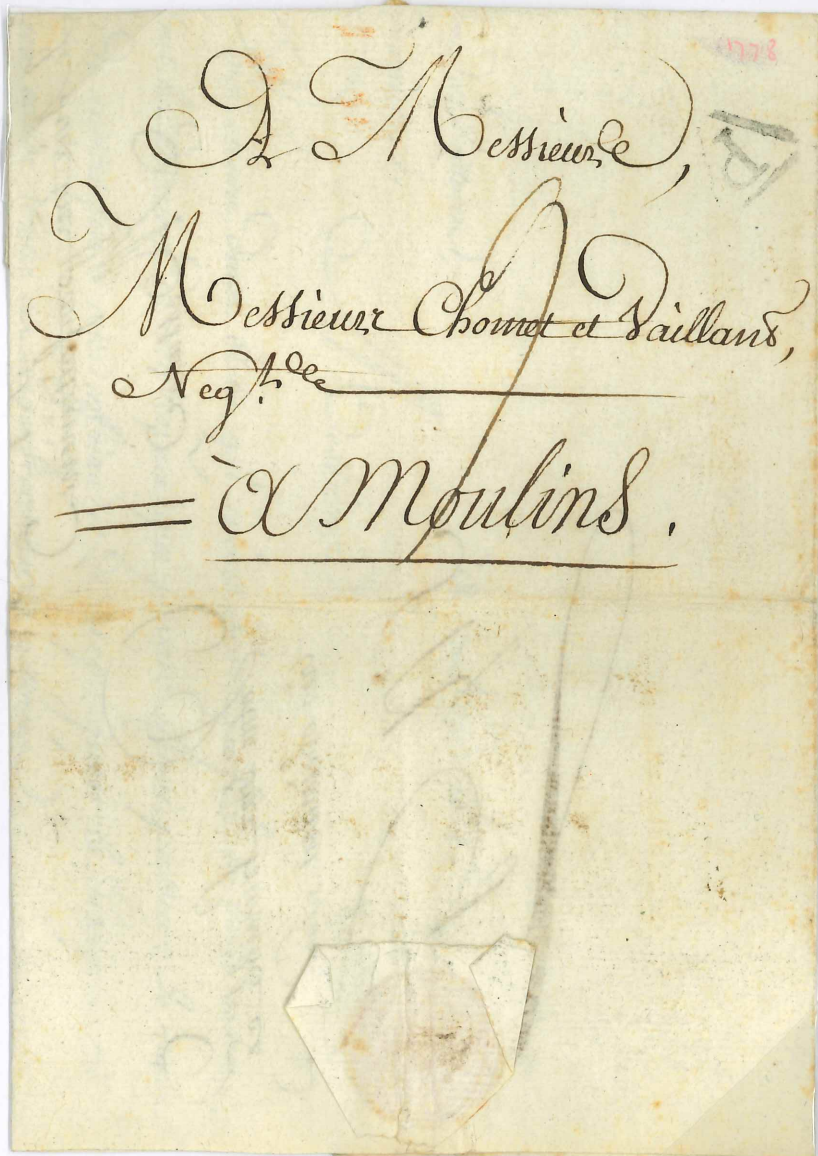 1778
A Messieurs,
Messieurs Chomet et Vaillant,
Neg.ts
à Moulins.